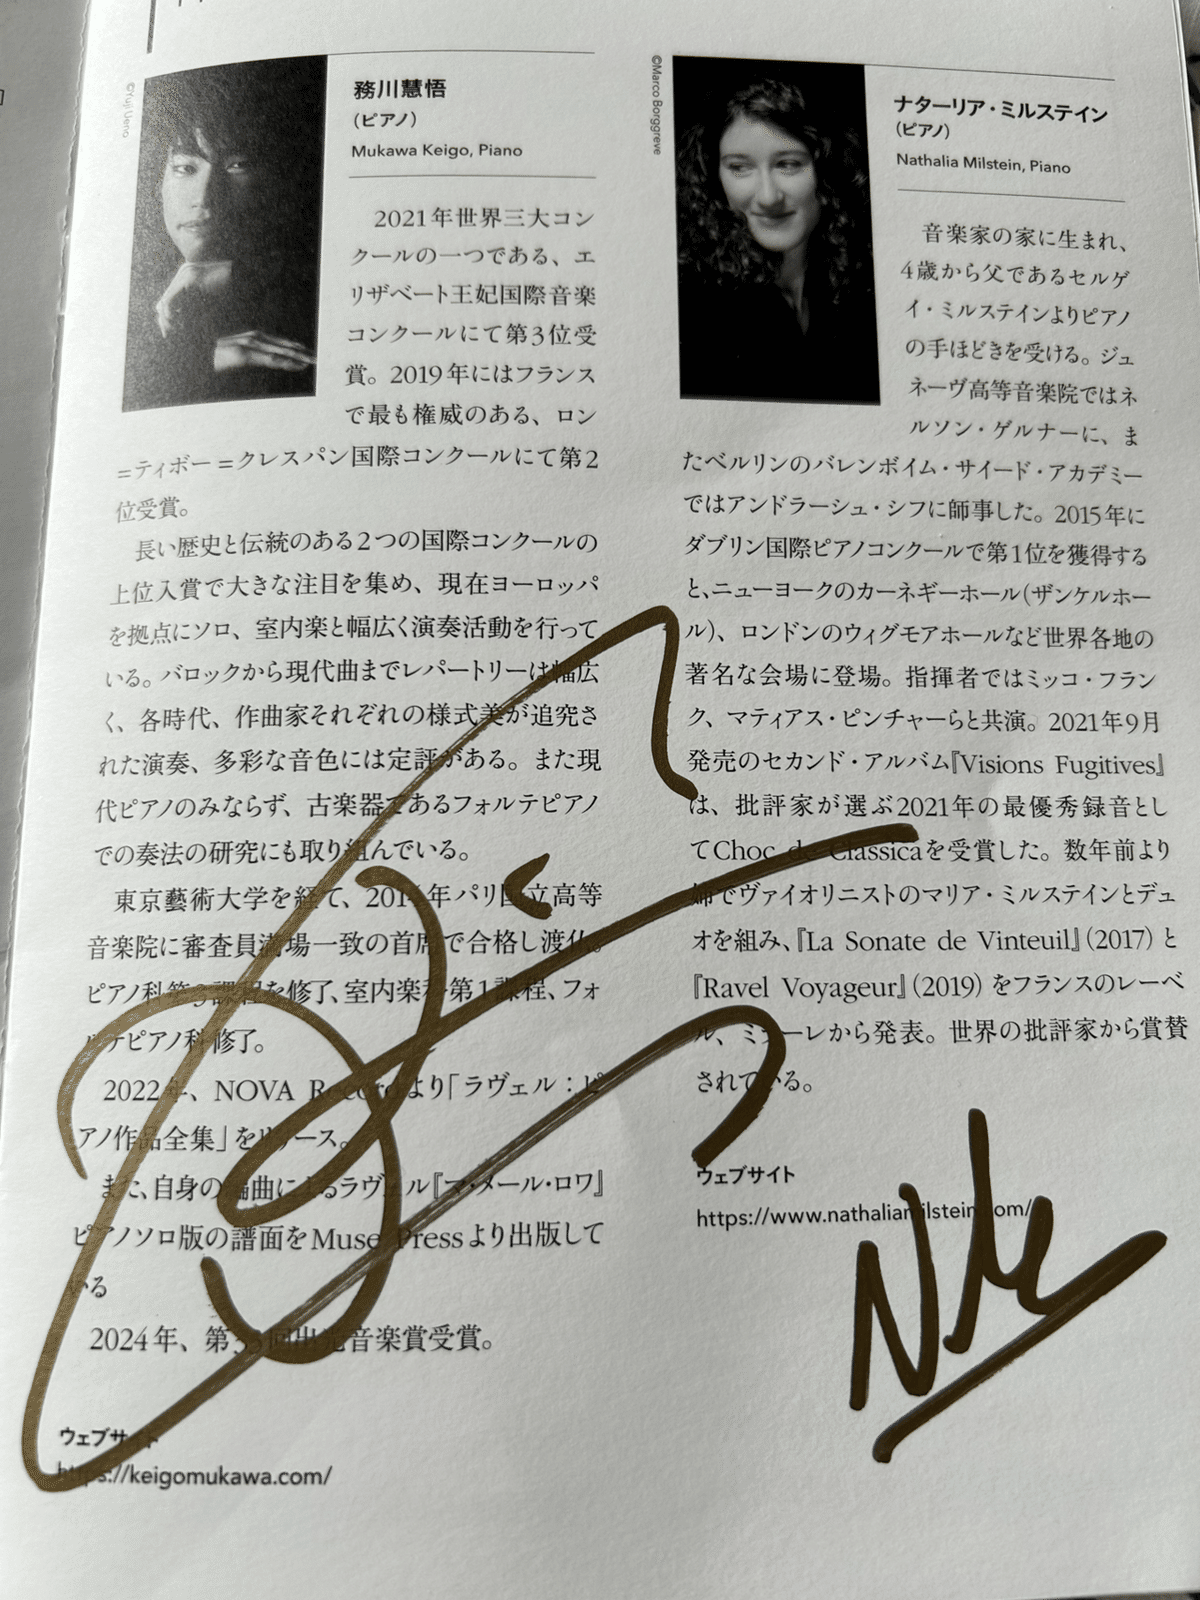 ©Yuji Ueno
務川慧悟
（ピアノ）
Mukawa Keigo, Piano
2021年世界三大コン
クールの一つである、エ
リザベート王妃国際音楽
コンクールにて第3位受
賞。2019年にはフランス
で最も権威のある、ロン
=ティボー=クレスパン国際コンクールにて第2
位受賞。
長い歴史と伝統のある2つの国際コンクールの
上位入賞で大きな注目を集め、現在ヨーロッパ
を拠点にソロ、室内楽と幅広く演奏活動を行って
いる。バロックから現代曲までレパートリーは幅広
く、各時代、作曲家それぞれの様式美が追究さ
れた演奏、多彩な音色には定評がある。また現
代ピアノのみならず、古楽器であるフォルテピアノ
での奏法の研究にも取り組んでいる。
東京藝術大学を経て、201年パリ国立高等
音楽院に審査員満場一致の首席で合格し渡仏。
ピアノ科第3課程を修了、室内楽科第1課程、フォ
ルテピアノ科修了。
2022年、NOVA Recordより「ラヴェル：ピ
アノ作品全集」をリリース。
また、自身の編曲によるラヴェル『マ・メール・ロワ』
ピアノソロ版の譜面をMuse Pressより出版して
いる
2024年、第33回出光音楽賞受賞。
ウェブサイト
https://keigomukawa.com/
©Marco Borggreve
ナターリア・ミルステイン
（ピアノ）
Nathalia Milstein, Piano
音楽家の家に生まれ、
4歳から父であるセルゲ
イ・ミルステインよりピアノ
の手ほどきを受ける。ジュ
ネーヴ高等音楽院ではネ
ルソン・ゲルナーに、ま
たベルリンのバレンボイム・サイード・アカデミー
ではアンドラーシュ・シフに師事した。2015年に
ダブリン国際ピアノコンクールで第1位を獲得する
と、ニューヨークのカーネギーホール（ザンケルホー
ル）、ロンドンのウィグモアホールなど世界各地の
著名な会場に登場。指揮者ではミッコ・フラン
ク、マティアス・ピンチャーらと共演。2021年9月
発売のセカンド・アルバム『Visions Fugitives』
は、批評家が選ぶ2021年の最優秀録音とし
てChoc de Classicaを受賞した。数年前より
姉でヴァイオリニストのマリア・ミルステインとデュ
オを組み、『La Sonate de Vinteuil』（2017）と
『Ravel Voyageur』（2019）をフランスのレーベ
ル、ミラーレから発表。世界の批評家から賞賛
されている。
ウェブサイト
https://www.nathaliamilstein.com/